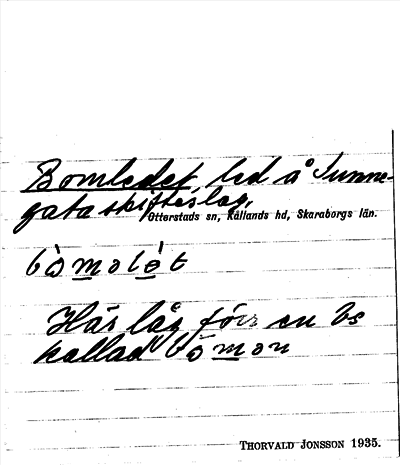 Bomledet, led å Sunne-
gata skifteslag,
Otterstads sn, Kållands hd, Skaraborgs län.
bò̀m̲əlè̲t
Här låg förr en bs
kallad bò̀m̲ən
THORVALD JONSSON 1935.